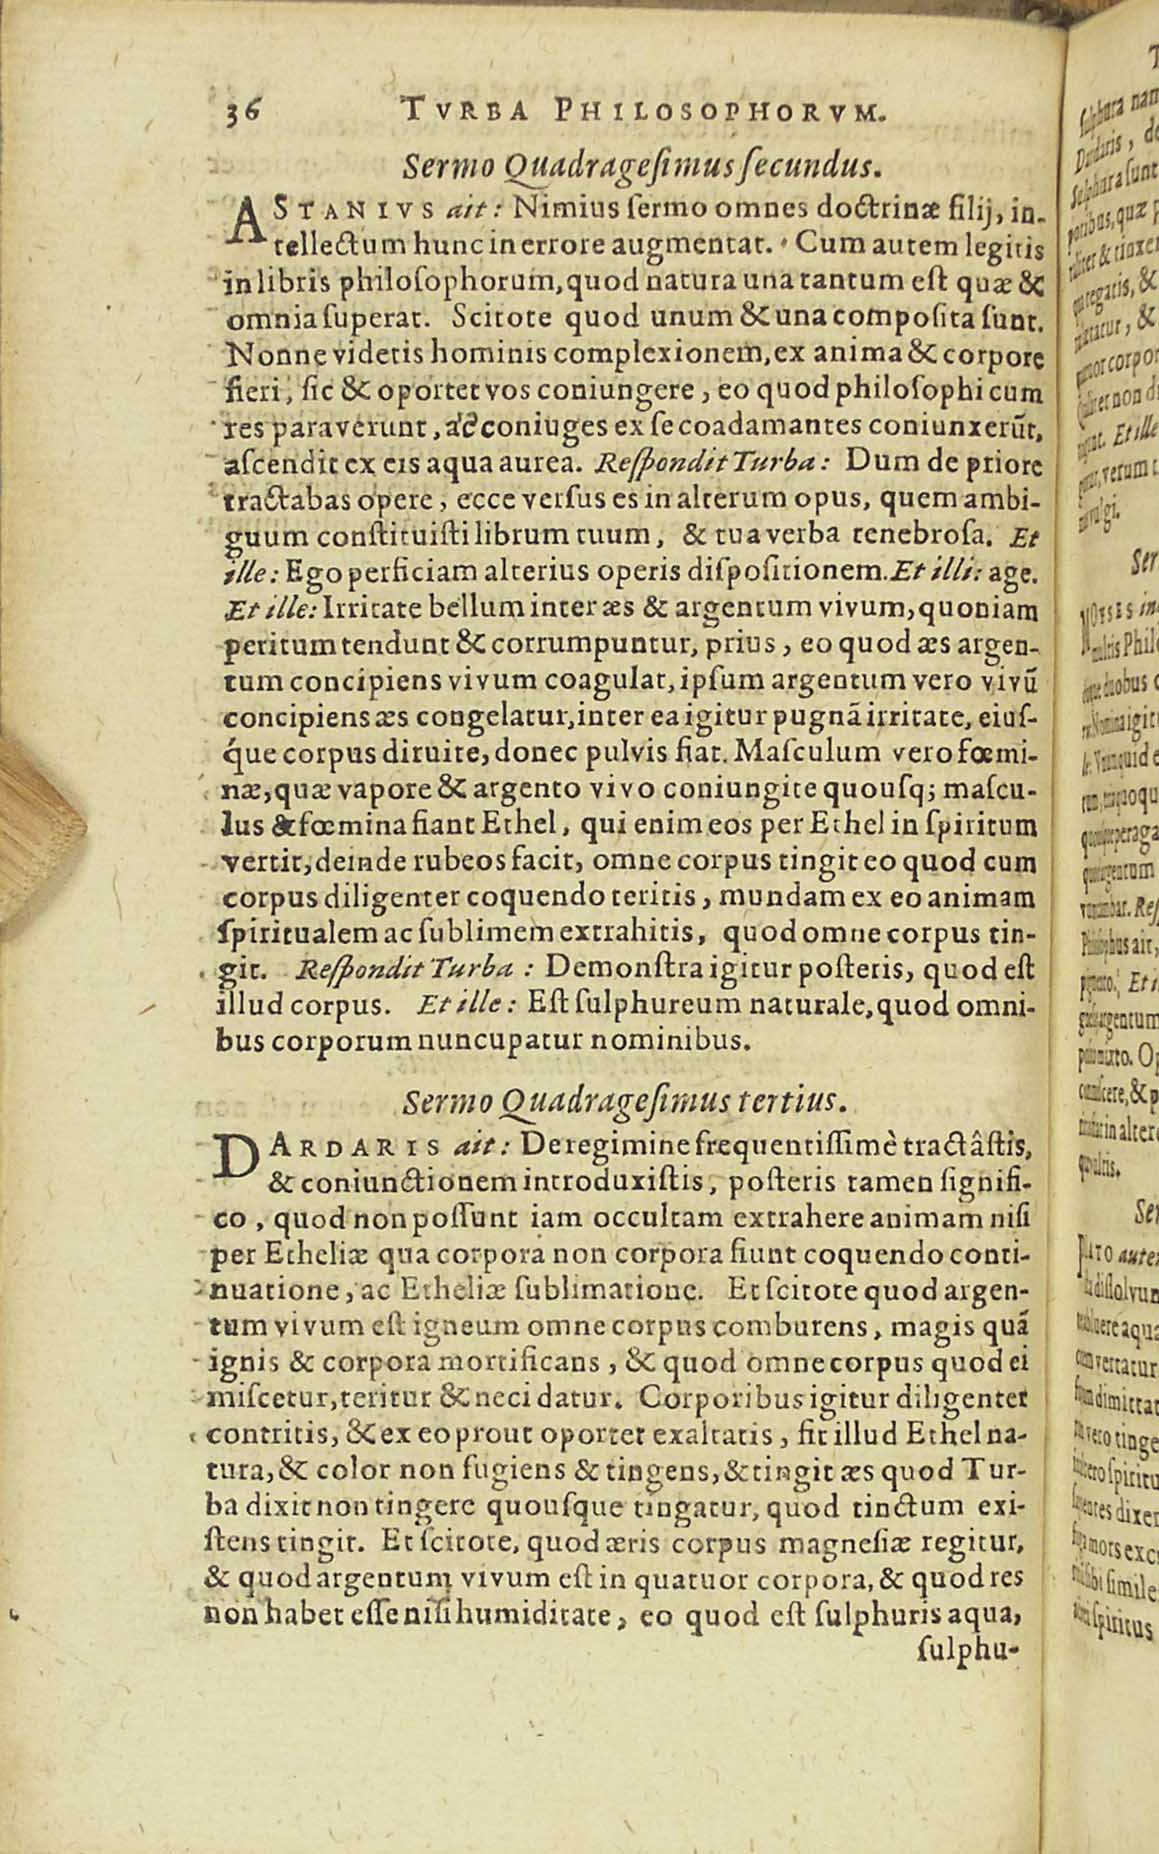 36 TVRBA PHILOSOPHORVM.
Sermo Quadragesimus secundus.
ASTANIVS ait: Nimius sermo omnes doctrinæ filij, in-
tellectum hunc in errore augmentat. Cum autem legitis
in libris philosophorum, quod natura una tantum est quæ &
omnia superat. Scitote quod unum & una composita sunt.
Nonne videtis hominis complexionem, ex anima & corpore
fieri, sic & oportet vos coniungere, eo quod philosophi cum
res paraverunt, ac coniuges ex se coadamantes coniunxerũt,
ascendit ex eis aqua aurea. Respondit Turba: Dum de priore
tractabas opere, ecce versus es in alterum opus, quem ambi-
guum constituisti librum tuum, & tua verba tenebrosa. Et
ille: Ego perficiam alterius operis dispositionem. Et illi: age.
Et ille: Irritate bellum inter æs & argentum vivum, quoniam
peritum tendunt & corrumpuntur, prius, eo quod æs argen-
tum concipiens vivum coagulat, ipsum argentum vero vivũ
concipiens æs congelatur, inter ea igitur pugnã irritate, eius-
q́ue corpus diruite, donec pulvis fiat. Masculum vero fœmi-
næ, quæ vapore & argento vivo coniungite quousq; mascu-
lus & fœmina fiant Ethel, qui enim eos per Ethel in spiritum
vertit, deinde rubeos facit, omne corpus tingit eo quod cum
corpus diligenter coquendo teritis, mundam ex eo animam
spiritualem ac sublimem extrahitis, quod omne corpus tin-
git. Respondit Turba: Demonstra igitur posteris, quod est
illud corpus. Et ille: Est sulphureum naturale, quod omni-
bus corporum nuncupatur nominibus.
Sermo Quadragesimus tertius.
DARDARIS ait: De regimine frequentissimè tractâstis,
& coniunctionem introduxistis, posteris tamen signifi-
co, quod non possunt iam occultam extrahere animam nisi
per Etheliæ qua corpora non corpora fiunt coquendo conti-
nuatione, ac Etheliæ sublimatione. Et scitote quod argen-
tum vivum est igneum omne corpus comburens, magis quã
ignis & corpora mortificans, & quod omne corpus quod ei
miscetur, teritur & neci datur. Corporibus igitur diligenter
contritis, & ex eo prout oportet exaltatis, fit illud Ethel na-
tura, & color non fugiens & tingens, & tingit æs quod Tur-
ba dixit non tingere quousque tingatur, quod tinctum exi-
stens tingit. Et scitote, quod æris corpus magnesiæ regitur,
& quod argentum vivum est in quatuor corpora, & quod res
non habet esse nisi humiditate, eo quod est sulphuris aqua,
sulphu-